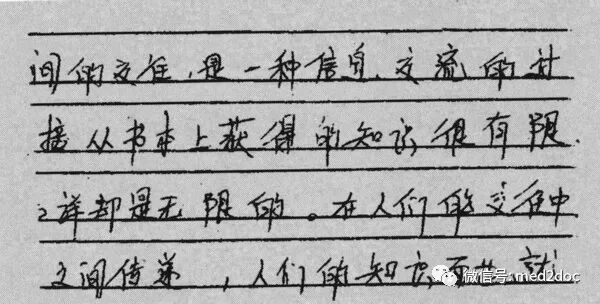 间的交往,是一种信息、交流的过
接从书本上获得的知识很有限.
之详却是无限的。在人们的交往中
之间传递,人们的知识 就
微信号: med2doc